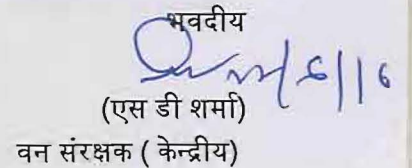 भवदीय
(एस डी शर्मा)
वन संरक्षक ( केन्द्रीय)